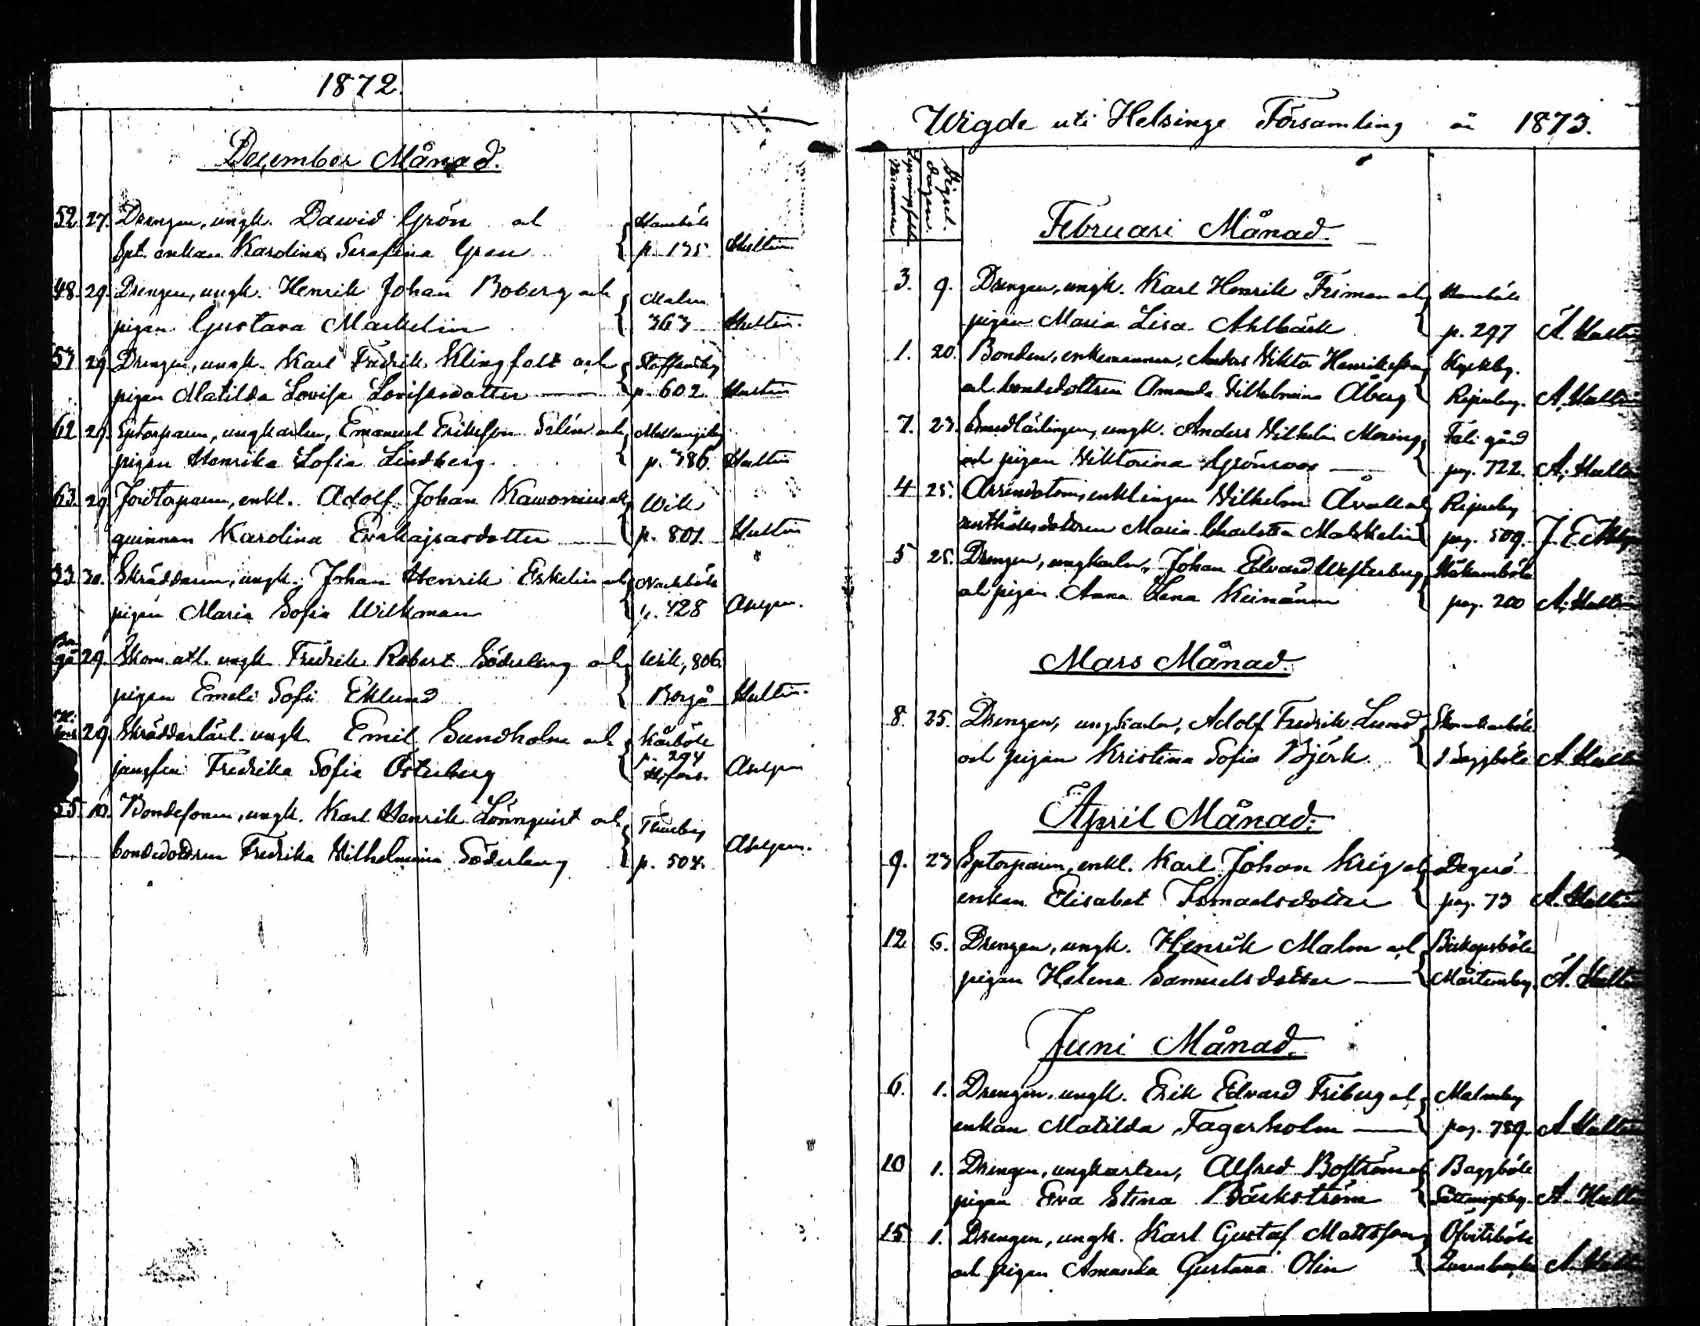 1872.
December Månad.
52 27. Drengen, ungk. David Grön och
Spt. enkan Karolina Serafina Gren p. 135 Hultin
48. 29. Drengen, ungk. Henrik Johan Boberg och Malm
pigan Gustava Markelin 363 Hultin.
57 29 Drengen, ungk. Karl Fredrik Klingfalt och Staffansby
pigan Matilda Lovisa Lovisasdotter p. 602 Hultin
62 29. Sptorparen, ungkarlen, Emanuel Eriksson Silén och
pigan Henrika Sofia Lindberg p. 386. Hultin
63. 29 enkl. Adolf Johan och Wik
quinnan Karolina Evakajsasdotter p. 801. Hultin
33 30. Skräddaren, ungk. Johan Henrik Eskelin och Nackböle
pigan Maria Sofia Wilkman p. 428
29. ungk. Fredrik Robert Söderberg och Wik, 806
pigan Emeli Sofi Eklund Borgå Hultin.
29 Skräddarlärl. ungk. Emil Sundholm och Kårböle
p. 294
jungfrun Fredrika Sofia Österberg H:fors.
55. 10. Bondesonen, ungk. Karl Henrik Lönnquist och
bondedottren Fredrika Wilhelmina Söderberg p. 504.
Wigde uti Helsinge Församling år 1873.
Februari Månad.
3. 9. Drengen, ungk. Karl Henrik Friman och
pigan Maria Lisa Ahlbäck p. 297 A. Hultin
1. 20. Bonden, enkemannen, Anders Viktor Henriksson
och bondedottren Amanda Vilhelmina Åberg A. Hultin
7. 23. Smedlärlingen, ungk. Anders Vilhelm Moring Fali gård
och pigan Viktorina Grönroos pag. 722. A. Hultin
4 25. enklingen Vilhelm och
Maria Charlotta Malkelin pag. 509.
5 25. Drengen, ungkarlen, Johan Edvard Westerberg Håkansböle
och pigan Anna Lena Keinänen pag. 200 A. Hultin
Mars Månad.
8. 25. Drengen, ungkarlen, Adolf Fredrik Lund
och pigan Kristina Sofia Björk. i Baggböle A. Hultin
April Månad.
9. 23 Sptorparen, enkl. Karl Johan Krig och Degerö
enkan Elisabet Ismaelsdotter pag. 73 A. Hultin
12 6. Drengen, ungk. Henrik Malm och Biskopsböle
pigan Helena Samuelsdotter Mårtensby. A. Hultin
Juni Månad.
6. 1. Drengen, ungk. Erik Edvard Friberg och Malmby
enkan Matilda Fagerholm pag. 789. A. Hultin
10 1. Drengen, ungkarlen, Alfred Boström och Baggböle
pigan Eva Stina Bäckström A. Hultin
15 1. Drengen, ungk. Karl Gustaf Mattsson
och pigan Amanda Gustava Olin A. Hultin